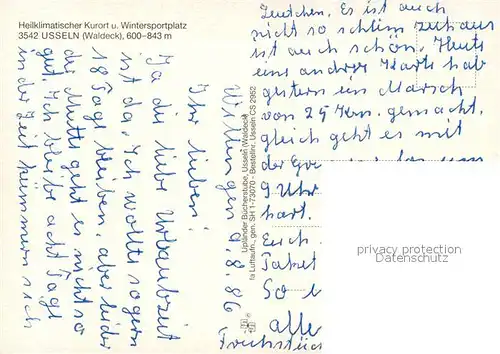 Heilklimatischer Kurort u. Wintersportplatz
3542 USSELN (Waldeck), 600–843 m
Willingen 9.8.86
Ihr Lieben!
Ja die liebe Urlaubszeit
ist da, Ich wollte sogern
18 Tage bleiben, aber leider
der Mutti geht es nicht so
gut. Ich bleibe acht Tage
in der Zeit kümmern sich
Upländer Bücherstube, Usseln (Waldeck)
fa Luftaufn., gen. SH 1-73070 - Bestellnr. Usseln CS 2952
Leutchen, Es ist auch
nicht so schlim zuhaus
ist auch schön. Heute
uns andrer Karte hab
gestern ein Marsch
von 25 Km. gemacht,
gleich geht es mit
der
9 Uhr
hart.
Euch.
So
alle
Frühstück
privacy protection
Datenschutz